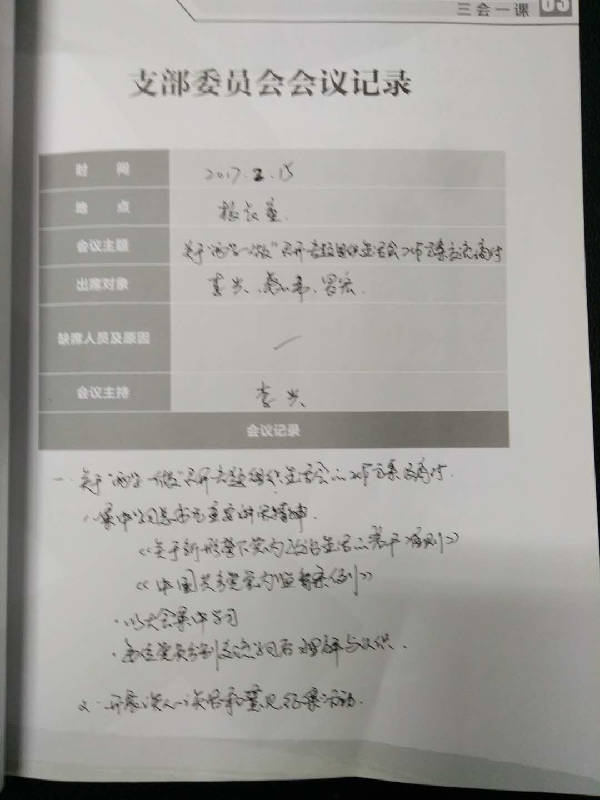 三会一课 03
支部委员会会议记录
时 间 2017.2.15
地 点 校长室
会议主题 关于"两学一做"召开专题组织生活会工作方案
出席对象 李兴、
缺席人员及原因 —
会议主持 李兴
会议记录
一、关于"两学一做"召开专题组织生活会的工作方案及商讨.
·集中学习总书记重要讲话精神
《关于新形势下党内政治生活的若干准则》
《中国共产党党内监督条例》
·以大会集中学习
·每位党员分别交流学习后理解与认识.
2. 开展谈心谈话和意见征集活动.